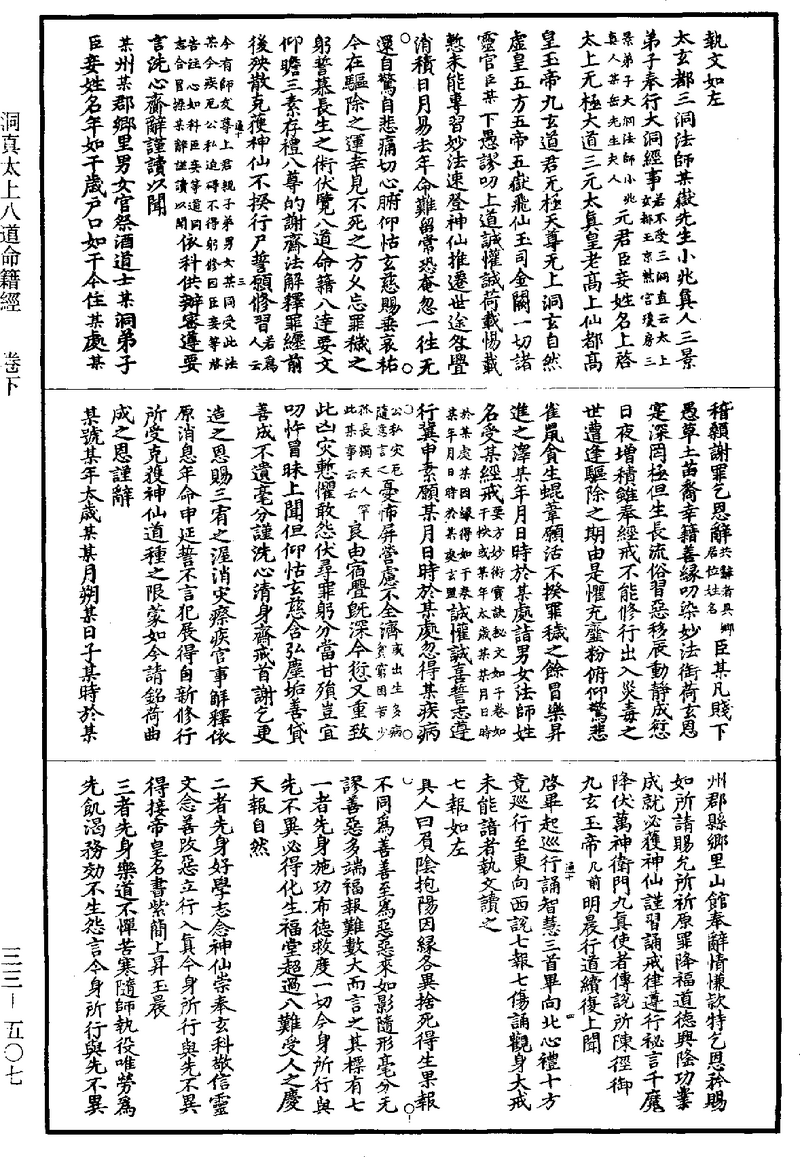 洞真太上八道命籍經 卷下
三三—五〇七
執文如左
太玄都三洞法師某嶽先生小兆真人三景
弟子奉行大洞經事若不受三洞直云太上
某弟子大洞法師小兆
真人某岳先生夫人元君臣妾姓名上啓
太上无極大道三元太真皇老高上仙都高
皇玉帝九玄道君无極天尊无上洞玄自然
虛皇五方五帝五嶽飛仙玉司金闕一切諸
靈官臣某下愚謬叨上道誠懽誠荷載惕載
慙未能專習妙法速登神仙推遷世途各舋
消積日月易去年命難留常恐奄忽一往无
還自驚自悲痛切心腑仰怙玄慈賜垂哀祐
今在驅除之運幸見不死之方乆忘罪穢之
躬誓慕長生之術伏覽八道命籍八達要文
仰瞻三素存禮八尊的謝齋法解釋罪纏前
後殃散克獲神仙不揆行尸誓願修習若爲人云
今有師友尊上君親子弟男女某同受此法
某今疾厄公私迫碍不得躬修因臣妾等啓
告注心如科臣妾等道同
志合冒操某辭謹讀以聞依科供辦審遵要
言洗心齋辭謹讀以聞
某州某郡鄉里男女官祭酒道士某洞弟子
臣妾姓名年如干歲戶口如干今住某處某
稽顙謝罪乞恩辭共辭者具鄉居位姓名臣某凡賤下
愚草土苗裔幸籍善緣叨染妙法銜荷玄恩
寔深罔極但生長流俗習惡移辰動靜成愆
日夜增積雖奉經戒不能修行出入災毒之
世遭逢驅除之期由是懼充虀粉俯仰驚悲
雀鼠貪生蜫葦願活不揆罪穢之餘冒樂昇
進之澤某年月日時於某處詣男女法師姓
名受某經戒要方妙術寶訣秘文如干卷如
干帙或某年太歲某某月日時
於某處某因緣得如干
某年月日時於某處玄盟誠懽誠喜誓志遵
行冀申素願某月日時於某處忽得某疾病
公私灾厄
隨意言之憂怖屏營慮不全濟或出生多病貧窮困苦少
孫長獨天人
此某事云云良由宿舋旣深今愆又重致
此凶灾慙懼敢怨伏尋罪躬分當甘殞豈宜
叨忤冒昧上聞但仰怙玄慈含弘塵垢善貸
善成不遺毫分謹洗心清身齋戒首謝乞更
造之恩賜三宥之渥消灾瘵疾官事解釋依
原消息年命申延誓不言犯展得自新修行
所受克獲神仙道種之限蒙如今請銘荷曲
成之恩謹辭
某號某年太歲某某月朔某日子某時於某
州郡縣鄉里山館奉辭情慊欵特乞恩矜賜
如所請賜允所祈原罪降福道德興隆功業
成就必獲神仙謹習誦戒律遵行秘言千魔
降伏萬神衛門九真使者傳說所陳徑御
九玄玉帝几前明晨行道續復上聞
啓畢起巡行誦智慧三首畢向北心禮十方
竟巡行至東向西說七報七傷誦觀身大戒
未能諳者執文讀之
七報如左
真人曰負陰抱陽因緣各異捨死得生果報
不同爲善善至爲惡惡來如影隨形毫分无
謬善惡多端福報難數大而言之其標有七
一者先身施功布德救度一切今身所行與
先不異必得化生福堂超過八難受人之慶
天報自然
二者先身好學志念神仙崇奉玄科敬信靈
文念善改惡立行入真今身所行與先不異
得接帝皇名書紫簡上昇玉晨
三者先身樂道不憚苦寒隨師執役唯勞爲
先飢渴務効不生怨言今身所行與先不異